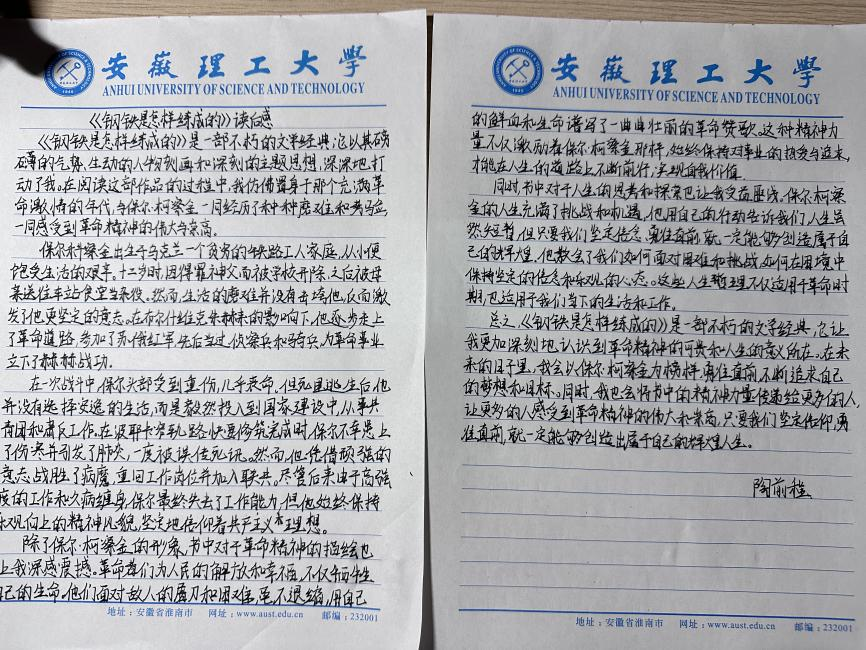 安徽理工大學
ANHUI UNIVERSITY OF SCIENCE AND TECHNOLOGY
《钢铁是怎样练成的》读后感
《钢铁是怎样练成的》是一部不朽的文学经典,它以其磅
礴的气势,生动的人物刻画和深刻的主题思想,深深地打
动了我。在阅读这部作品的过程中,我仿佛置身于那个充满革
命激情的年代,与保尔·柯察金一同经历了种种磨难和考验,
一同感受到革命精神的伟大与崇高。
保尔·柯察金出生于乌克兰一个贫穷的铁路工人家庭,从小便
饱受生活的艰辛。十二岁时,因得罪神父而被学校开除,之后被母
亲送往车站食堂当杂役。然而,生活的磨难并没有击垮他,反而激
发了他更坚定的意志。在布尔什维克朱赫来的影响下,他逐步走上
了革命道路,参加了苏俄红军,先后当过侦察兵和骑兵,为革命事业
立下了赫赫战功。
在一次战斗中,保尔头部受到重伤,几乎丧命。但死里逃生后,他
并没有选择安逸的生活,而是毅然投入到国家建设中,从事共
青团和肃反工作。在波耶卡窄轨铁路快要修筑完成时,保尔不幸患上
了伤寒并引发了肺炎,一度被误传死讯。然而,他凭借顽强的
意志战胜了病魔,重回工作岗位并加入联共。尽管后来由于高强
度的工作和久病缠身,保尔最终失去了工作能力,但他始终保持
乐观向上的精神风貌,坚定地信仰着共产主义理想。
除了保尔·柯察金的形象,书中对于革命精神的描绘也
让我深感震撼。革命者们为人民的解放和幸福,不仅牺牲
自己的生命。他们面对敌人的屠刀和困难,毫不退缩,用自己
地址:安徽省淮南市 网址:www.aust.edu.cn 邮编:232001
安徽理工大學
ANHUI UNIVERSITY OF SCIENCE AND TECHNOLOGY
的鲜血和生命谱写了一曲曲壮丽的革命赞歌。这种精神力
量不仅激励着保尔·柯察金那样,始终保持对事业的热爱与追求,
才能在人生的道路上不断前行,实现自我价值。
同时,书中对于人生的思考和探索也让我受益匪浅。保尔·柯察
金的人生充满了挑战和机遇,他用自己的行动告诉我们,人生虽
然短暂,但只要我们坚定信念,勇往直前,就一定能够创造属于自
己的辉煌。他教会了我们如何面对困难和挑战,如何在困境中
保持坚定的信念和乐观的心态。这些人生哲理不仅适用于革命时
期,也适用于我们当下的生活和工作。
总之,《钢铁是怎样练成的》是一部不朽的文学经典,它让
我更加深刻地认识到革命精神的可贵和人生的意义所在。在未
来的日子里,我会以保尔·柯察金为榜样,勇往直前,不断追求自己
的梦想和目标。同时,我也会将书中的精神力量传递给更多的人,
让更多的人感受到革命精神的伟大和崇高。只要我们坚定信仰,勇
往直前,就一定能够创造出属于自己的辉煌人生。
陶前程
地址:安徽省淮南市 网址:www.aust.edu.cn 邮编:232001